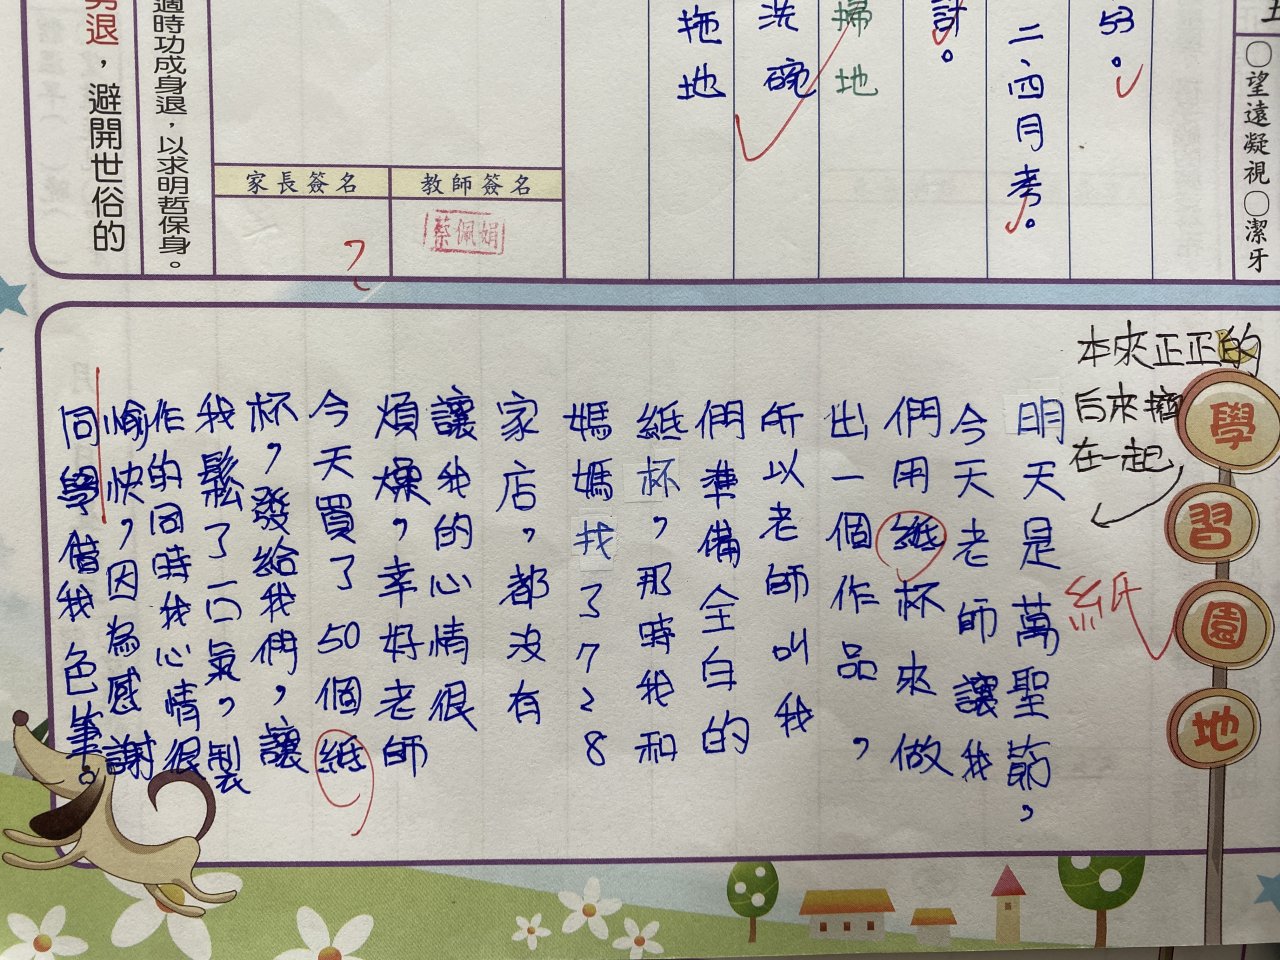 五
○望遠凝視○潔牙
53。
二四月考。
討。
掃地
洗碗
拖地
教師簽名
蔡佩娟
家長簽名
適時功成身退，以求明哲保身。
勇退，避開世俗的
學習園地
本來正正的
后來擠
在一起
紙
明天是萬聖節，
今天老師讓我
們用紙杯來做
出一個作品，
所以老師叫我
們準備全白的
紙杯，那時我和
媽媽找了728
家店，都沒有
讓我的心情很
煩燥，幸好老師
今天買了50個紙
杯，發給我們，讓
我鬆了一口氣，製
作的同時我心情很
愉快，因為感謝
同學借我色筆。